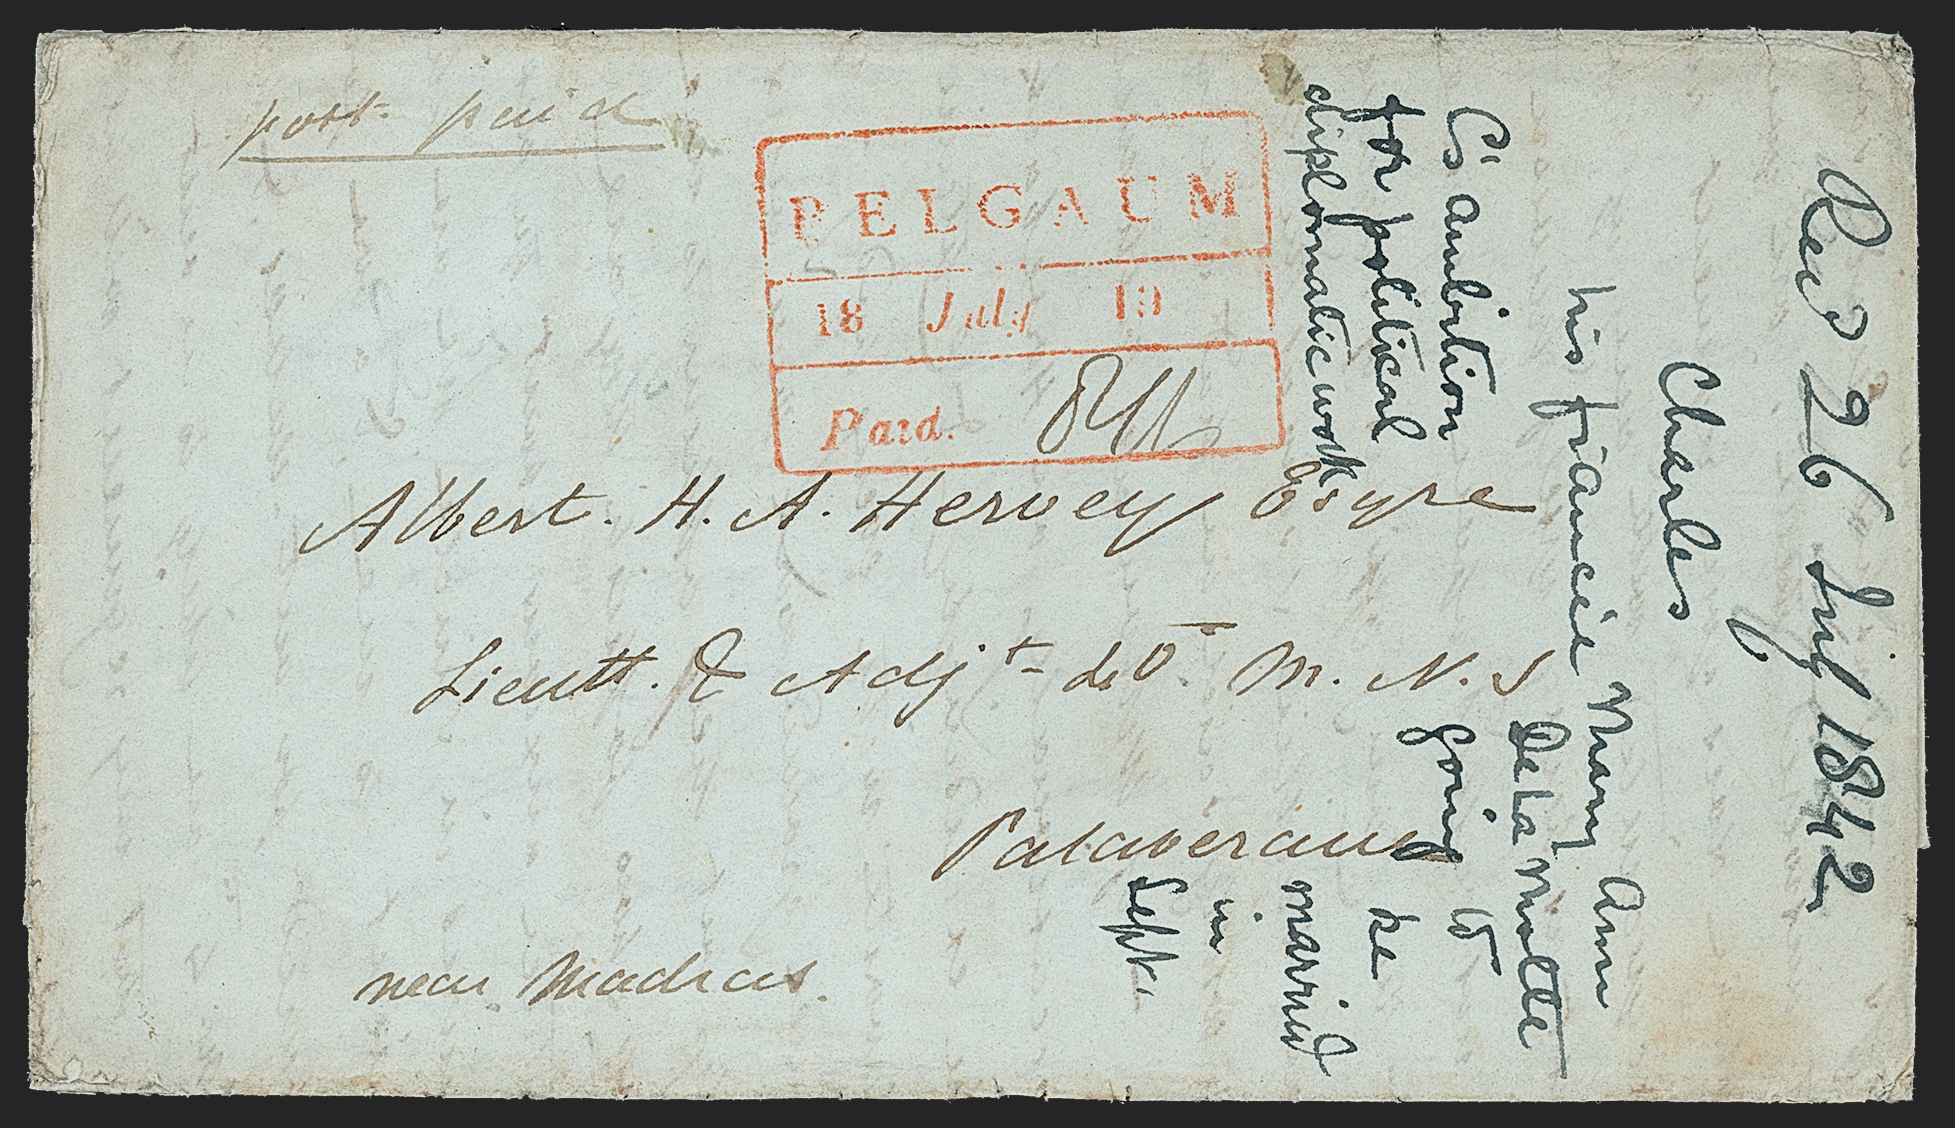 post paid
BELGAUM
18 July 19
Paid.
Albert. H. A. Hervey Esqre
Lieutt. & Adjt 40. M. N. I
Palaveram
near Madras.
Recd 26 July 1842
Charles
his fiancée Mary Ann
De La Motte
going to
be
married
in
Sept.
C's ambition
for political
diplomatic work